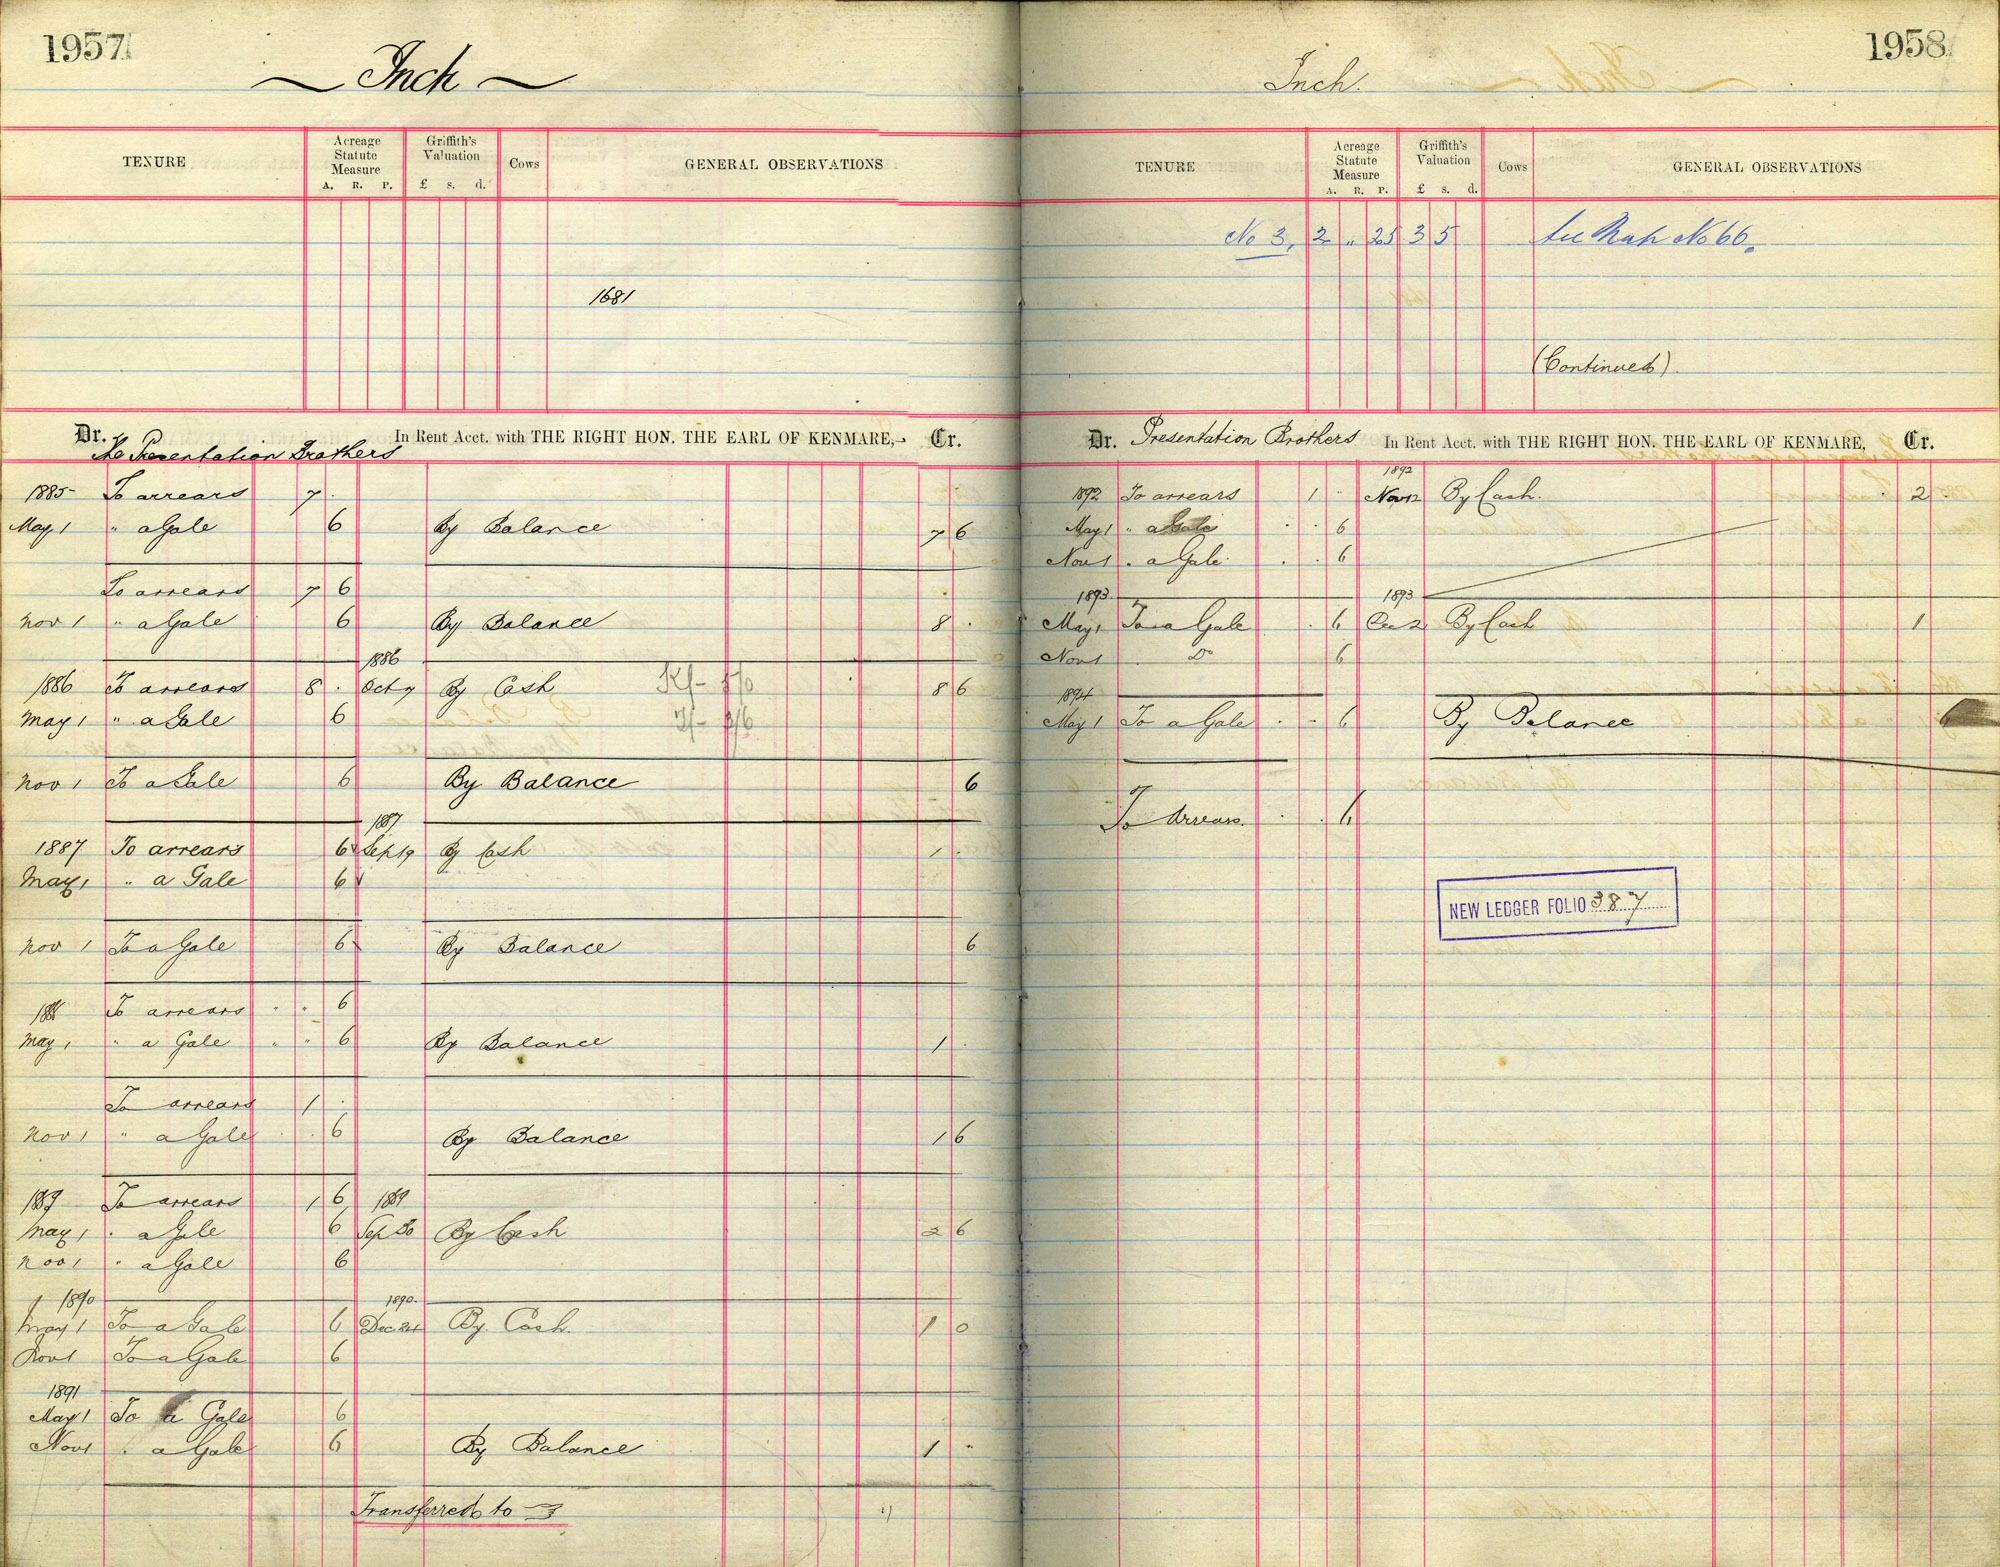 1957
Inch
TENURE
Acreage Statute Measure
A. R. P.
Griffith's Valuation
£ s. d.
Cows
GENERAL OBSERVATIONS
1681
Dr. The Presentation Brothers In Rent Acct. with THE RIGHT HON. THE EARL OF KENMARE, Cr.
1885 To arrears 7 .
May 1 " a Gale 6 By Balance 7 6
To arrears 7 6
Nov 1 " a Gale 6 By Balance 8 .
1886
1886 To arrears 8 . Oct 7 By Cash 8 6
May 1 " a Gale 6
Nov 1 To a Gale 6 By Balance 6
1887
1887 To arrears 6 Sep 19 By Cash 1 .
May 1 " a Gale 6
Nov 1 To a Gale 6 By Balance 6
1888 To arrears " " 6
May 1 " a Gale " " 6 By Balance 1 .
To arrears 1 .
Nov 1 " a Gale . . 6 By Balance 1 6
1889 To arrears 1 6 1889
May 1 " a Gale 6 Sep 30 By Cash 2 6
Nov 1 " a Gale 6
1890 1890.
May 1 To a Gale 6 Dec 24 By Cash. 1 0
Nov 1 To a Gale 6
1891
May 1 To a Gale 6
Nov 1 " a Gale 6 By Balance 1 "
Transferred to
1958
Inch.
TENURE
Acreage Statute Measure
A. R. P.
Griffith's Valuation
£ s. d.
Cows
GENERAL OBSERVATIONS
No 3, 2 " 25 3 5 See Map No 66.
(Continued).
Dr. Presentation Brothers In Rent Acct. with THE RIGHT HON. THE EARL OF KENMARE, Cr.
1892
1892 To arrears 1 " Nov 12 By Cash. 2 .
May 1 " a Gale . . 6
Nov 1 " a Gale . . 6
1893. 1893
May 1 To a Gale . 6 Dec 2 By Cash 1
Nov 1 Do 6
1894
May 1 To a Gale . . 6 By Balance
To Arrears. . . 6
NEW LEDGER FOLIO 387